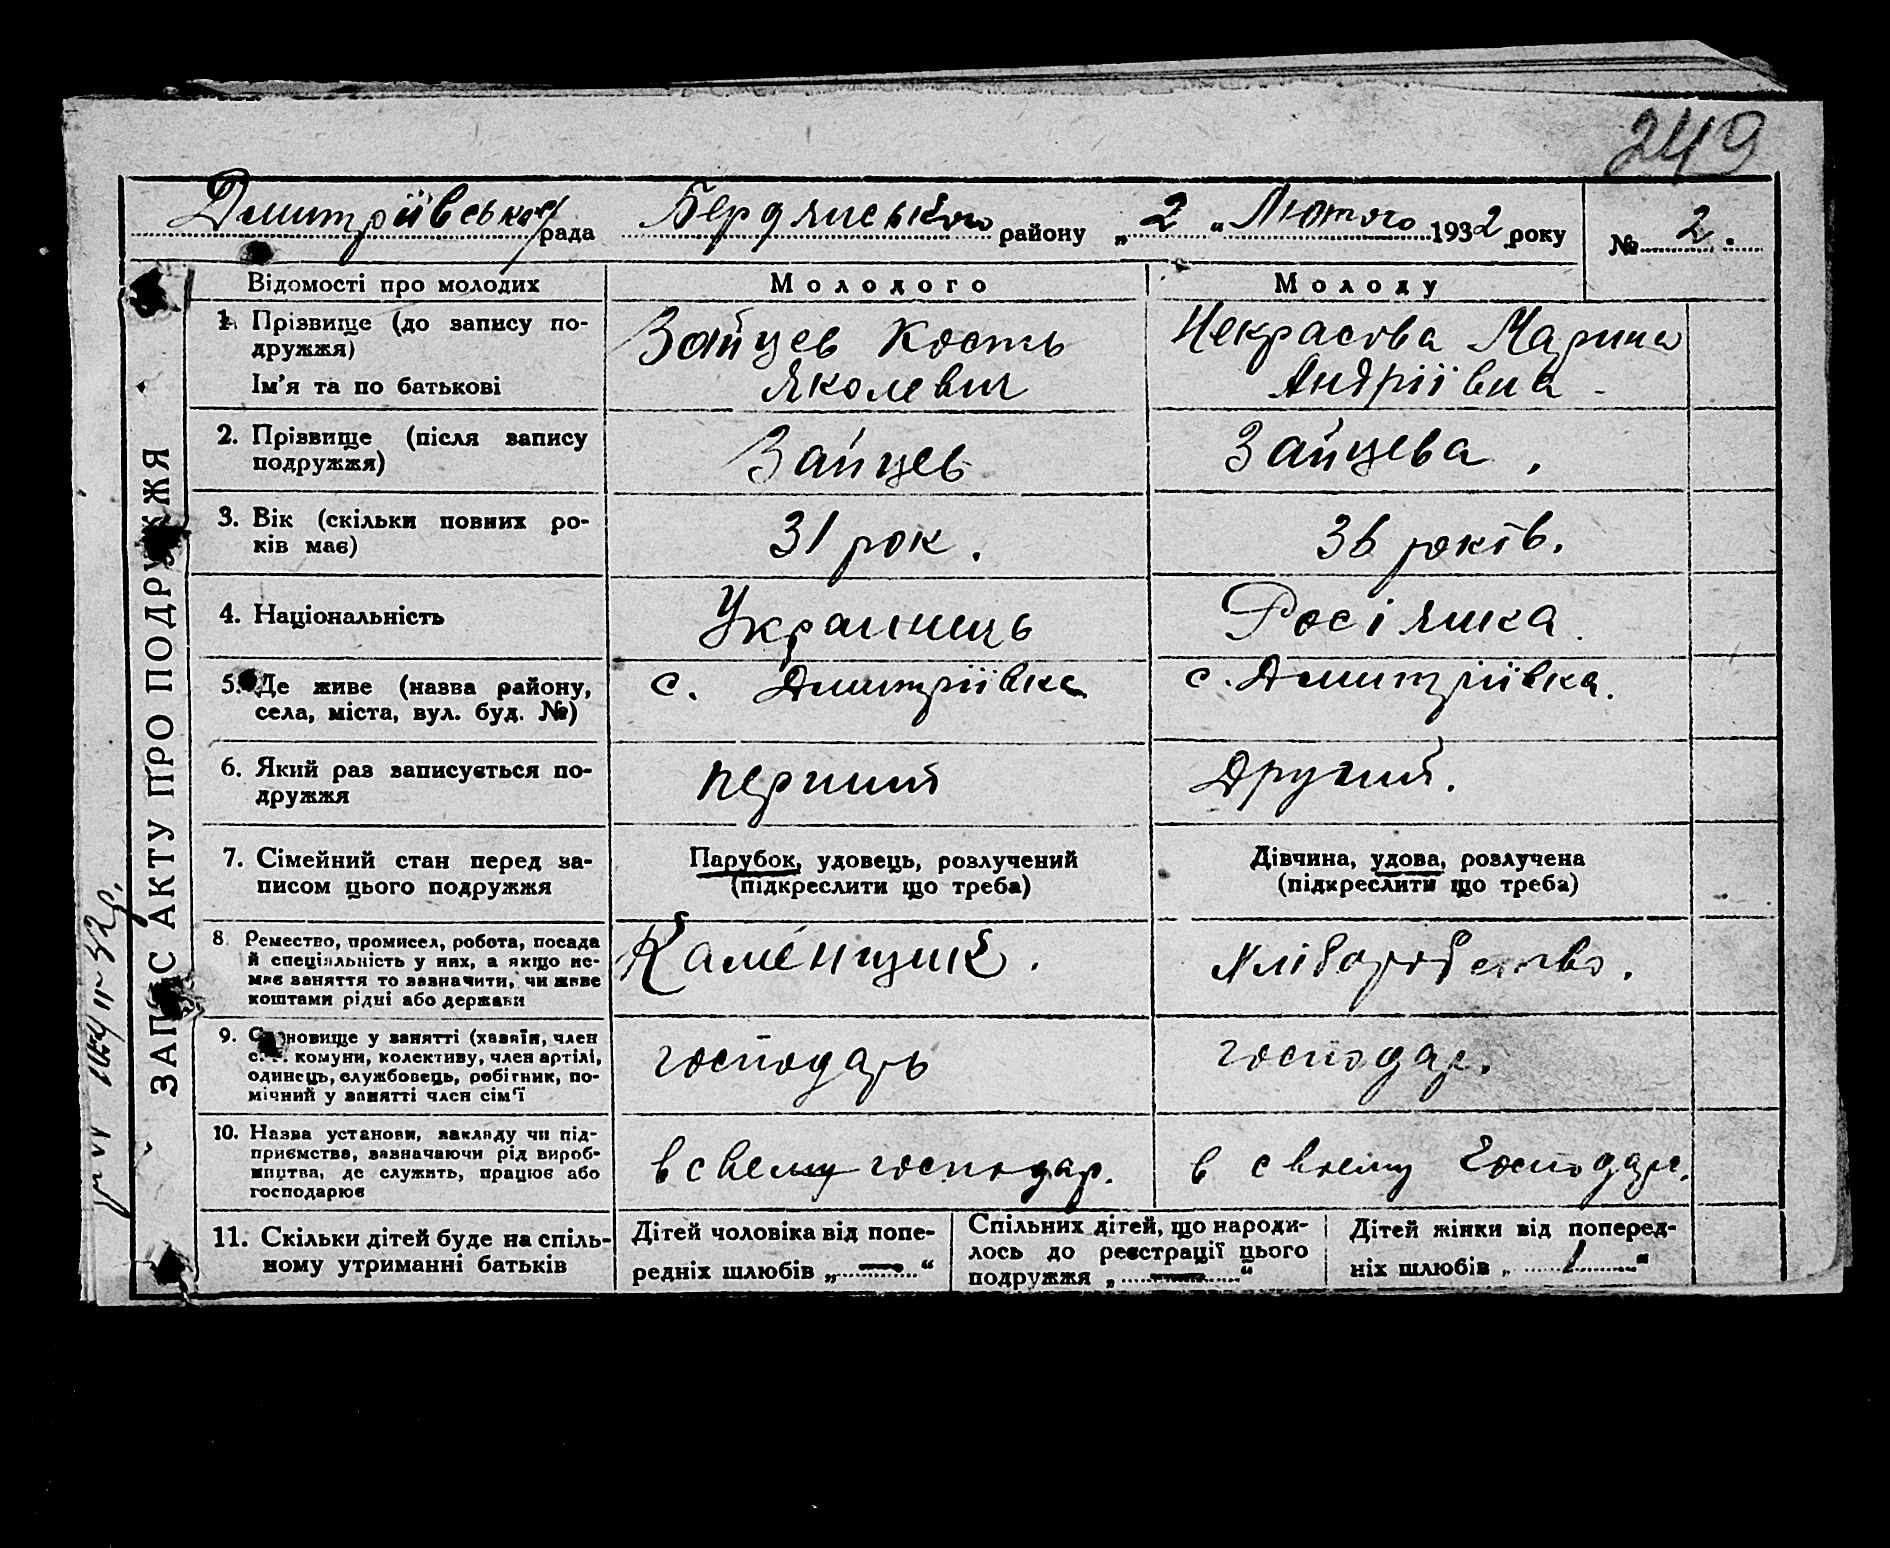 249
Дмитріївської рада Бердянського району „2“ Лютого 1932 року № 2.
Відомості про молодих Молодого Молоду
1. Прізвище (до запису по-
дружжя)
Ім’я та по батькові
Зайцев Кость
Яколевич
Некрасова Марина
Андріївна
2. Прізвище (після запису
подружжя)
Зайцев
Зайцева.
3. Вік (скільки повних ро-
ків має)
31 рок.
36 років.
4. Національність
Украинець
Росіянка.
5. Де живе (назва району,
села, міста, вул. буд. №)
с. Дмитріївка
с. Дмитріївка.
6. Який раз записується по-
дружжя
перший
Другий.
7. Сімейний стан перед за-
писом цього подружжя
Парубок, удовець, розлучений
(підкреслити що треба)
Дівчина, удова, розлучена
(підкреслити що треба)
8. Ремество, промисел, робота, посада
й спеціяльність у них, а якщо не-
має заняття то зазначити, чи живе
коштами рідні або держави
Каменщик.
Хліборобство.
9. Становище у занятті (хазяїн, член
с.-г. комуни, колективу, член артілі,
одинець, службовець, робітник, по-
мічний у занятті член сім’ї
господарь
господар.
10. Назва установи, закладу чи під-
приємства, зазначаючи рід вироб-
ництва, де служить, працює або
господарює
в свему господар.
в своему Господар.
11. Скільки дітей буде на спіль-
ному утриманні батьків
Дітей чоловіка від попе-
редніх шлюбів „—“
Спільних дітей, що народи-
лось до реєстрації цього
подружжя „—“
Дітей жінки від поперед-
ніх шлюбів „1“
ЗАПИС АКТУ ПРО ПОДРУЖЖЯ
32р.